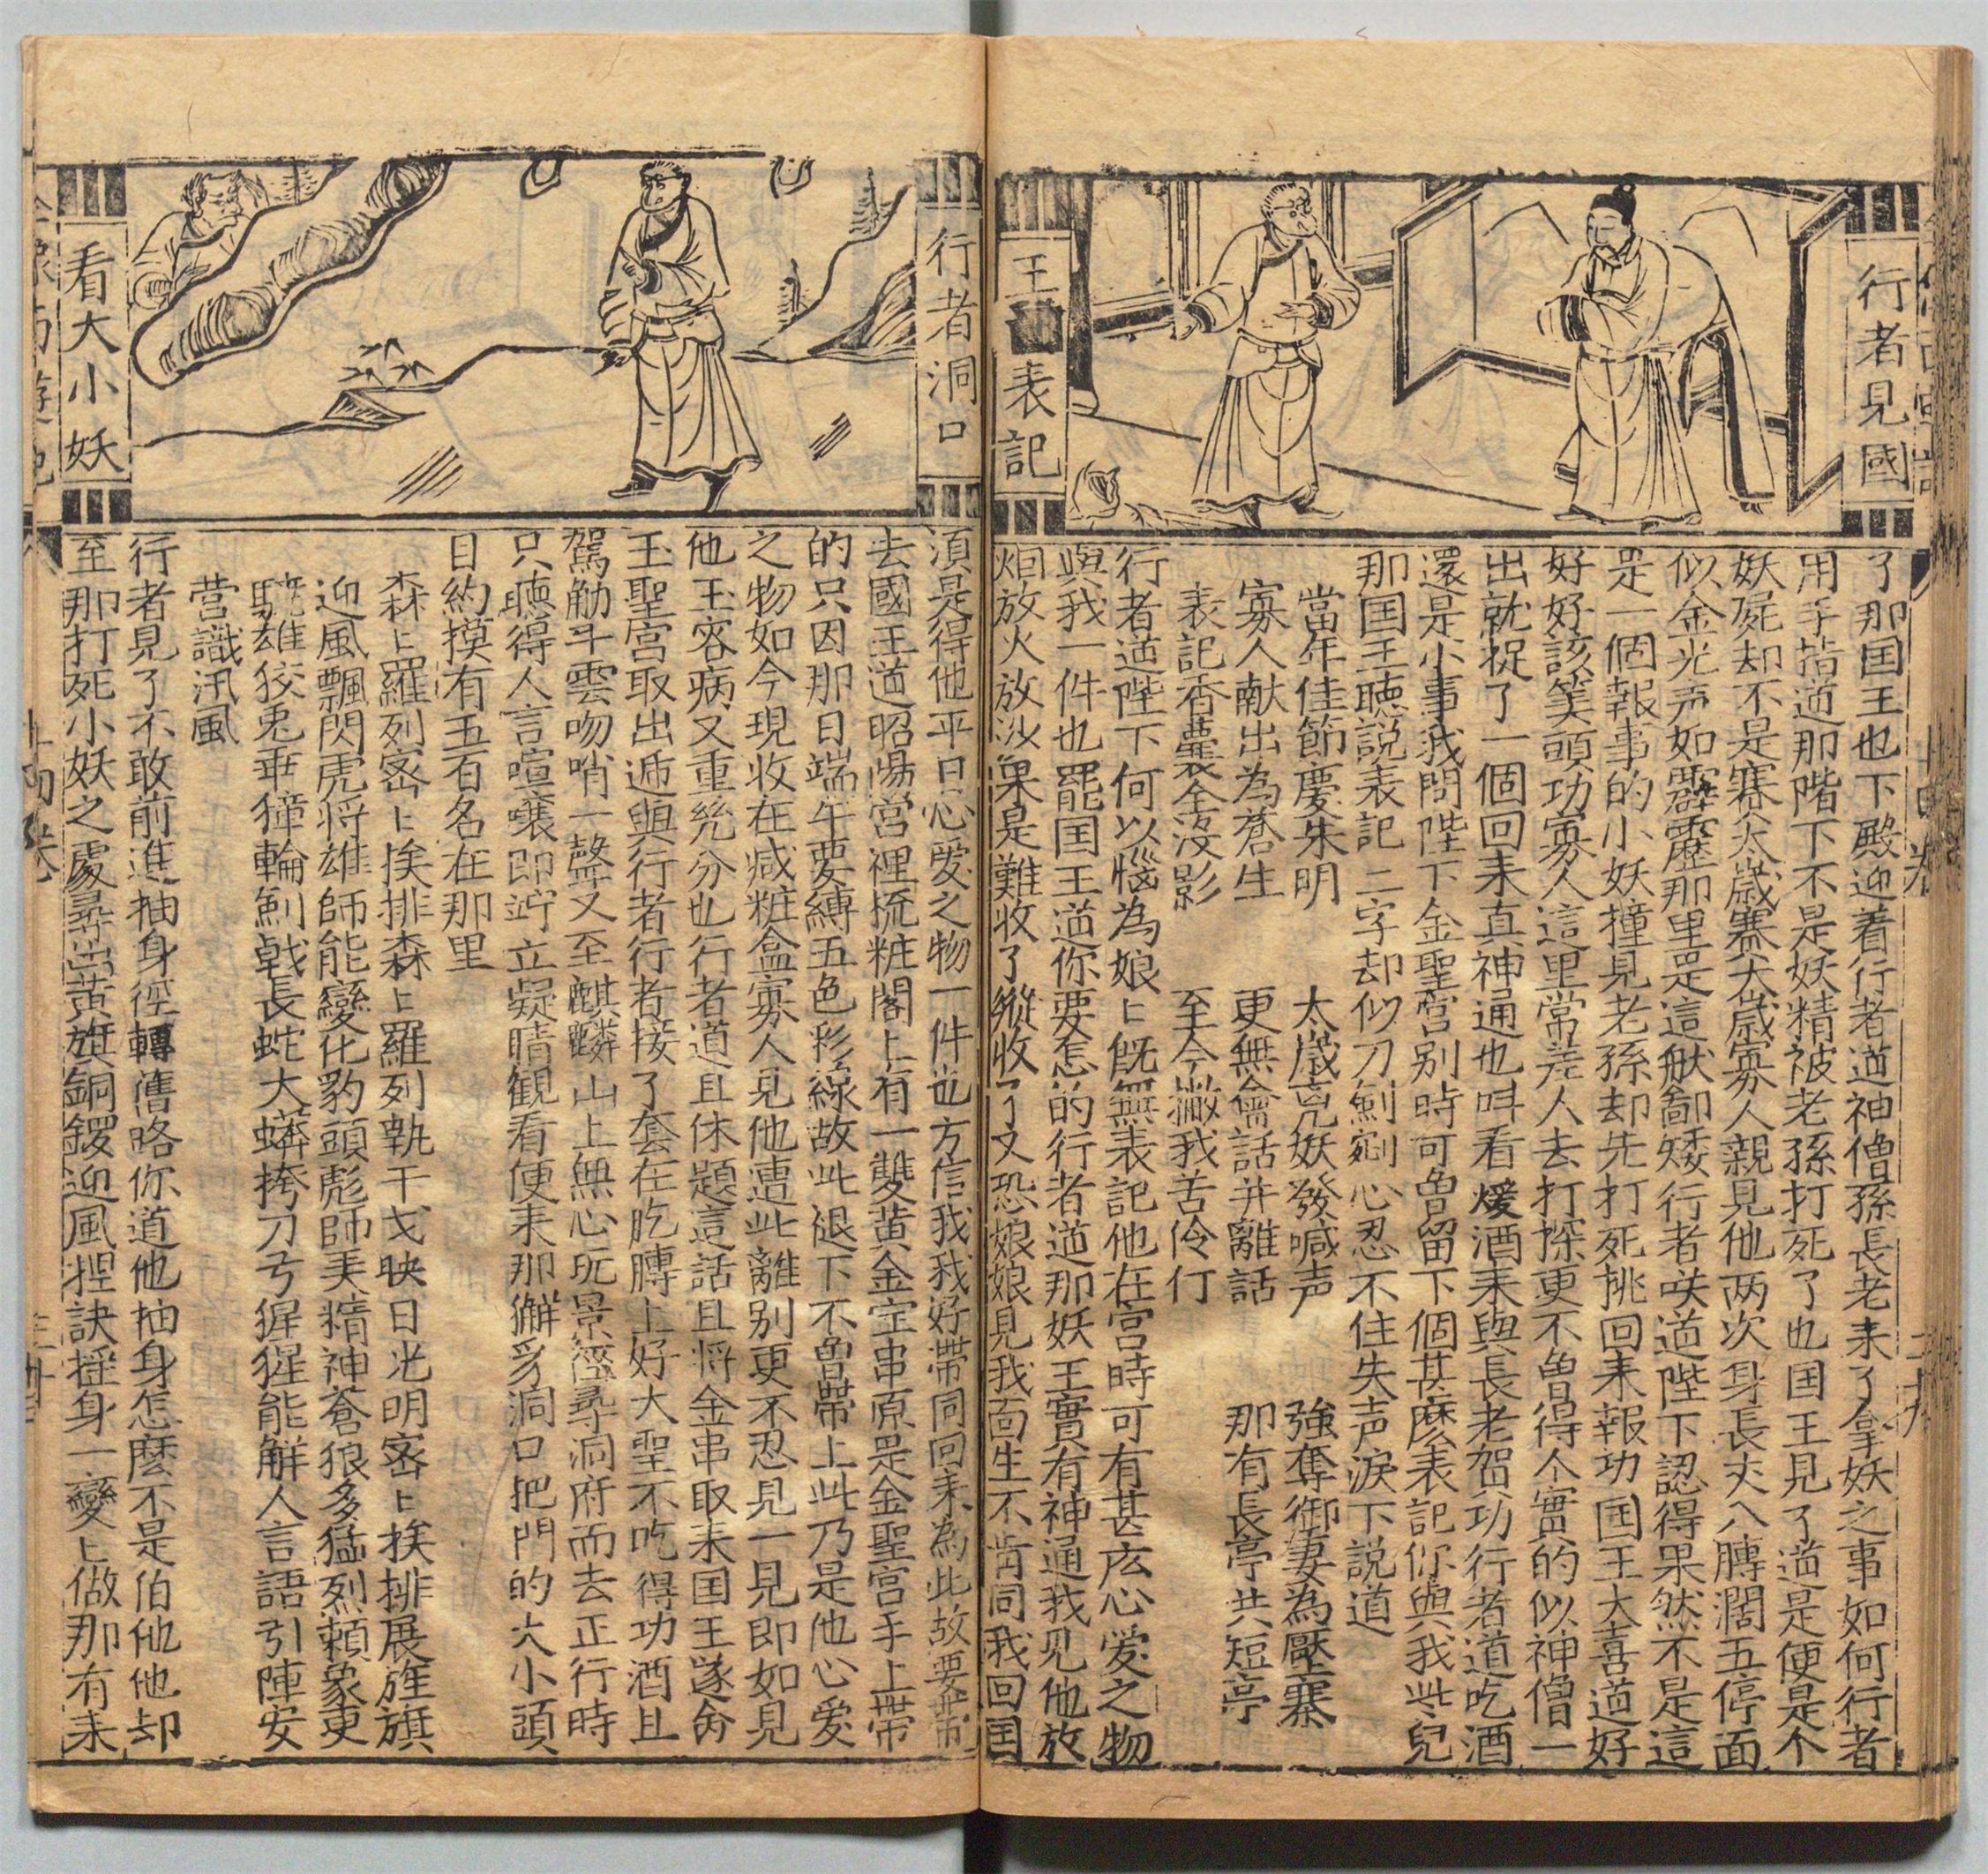 行者見國
王 表記
了那囯王也下殿迎着行者道神僧孫長老来了拿妖之事如何行者
用手指道那階下不是妖精被老孫打死了也囯王見了道是便是个
妖屍却不是賽太歲賽太歲寡人親見他两次身長丈八膊濶五停面
似金光声如霹靂那里是這般鄙矮行者咲道陛下認得果然不是這
是一個報事的小妖撞見老孫却先打死挑回来報功囯王大喜道好
好好該筭頭功寡人這里常差人去打探更不曾得个實的似神僧一
出就捉了一個回来真神通也呌看煖酒来與長老賀功行者道吃酒
還是小事我問陛下金聖宮别時可曾留下個甚麽表記你與我些兒
那囯王聴説表記二字却似刀劍剜心忍不住失声淚下説道
當年佳節慶朱明 太歲兇妖發喊声 強奪御妻為壓寨
寡人献出為蒼生 更無會話并離話 那有長亭共短亭
表記香囊全没影 至今撇我苦伶仃
行者道陛下何以惱為娘〻既無表記他在宮時可有甚庅心愛之物
與我一件也罷囯王道你要怎的行者道那妖王實有神通我见他放
烟放火放沙果是難收了縱收了又恐娘娘見我面生不肯同我回囯
行者洞口
看大小妖
須是得他平日心愛之物一件也方信我我好帶同回来為此故要帶
去國王道昭陽宮裡梳粧閣上有一雙黄金宝串原是金聖宮手上帶
的只因那日端午要縛五色彩線故此褪下不曾帶上此乃是他心愛
之物如今現收在减粧盒寡人見他遭此離别更不忍見一見即如見
他玉容病又重幾分也行者道且休題這話且將金串取来囯王遂命
玉聖宮取出遞與行者行者接了套在肐膊上好大聖不吃得功酒且
駕觔斗雲吻哨一聲又至麒麟山上無心玩景徑尋洞府而去正行時
只聴得人言喧嚷即竚立凝睛観看便来那獬豸洞口把門的大小頭
目約摸有五百名在那里
森〻羅列密〻挨排森〻羅列執干戈映日光明密〻挨排展旌旗
迎風飄閃虎将雄師能變化豹頭彪師美精神蒼狼多猛烈頼象更
驍雄狡兎乖獐輪劍戟長蛇大蟒挎刀弓猩猩能解人言語引陣安
营識汛風
行者見了不敢前進抽身徑轉舊略你道他抽身怎麽不是伯他他却
至那打死小妖之處尋出黄旗銅鑼迎風揑訣揺身一變〻做那有来